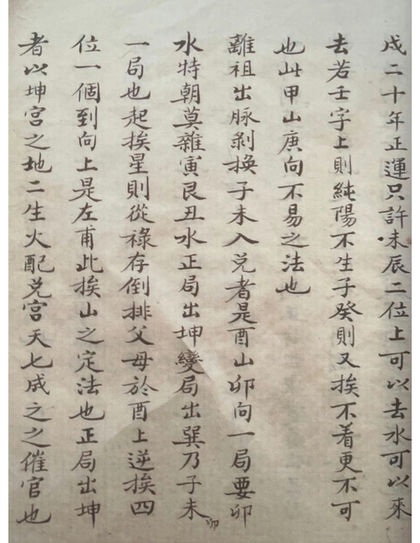 戌二十年正運只許未辰二位上可以去水可以來
去若壬字上則純陽不生子癸則又挨不着更不可
也此甲山庚向不易之法也
離祖出脉剝換子未入兑者是酉山卯向一局要卯
水特朝莫雜寅艮丑水正局出坤變局出巽乃子未卯
一局也起挨星則從祿存倒排父母於酉上逆挨四
位一個到向上是左甫此挨山之定法也正局出坤
者以坤宮之地二生火配兑宮天七成之之催官也